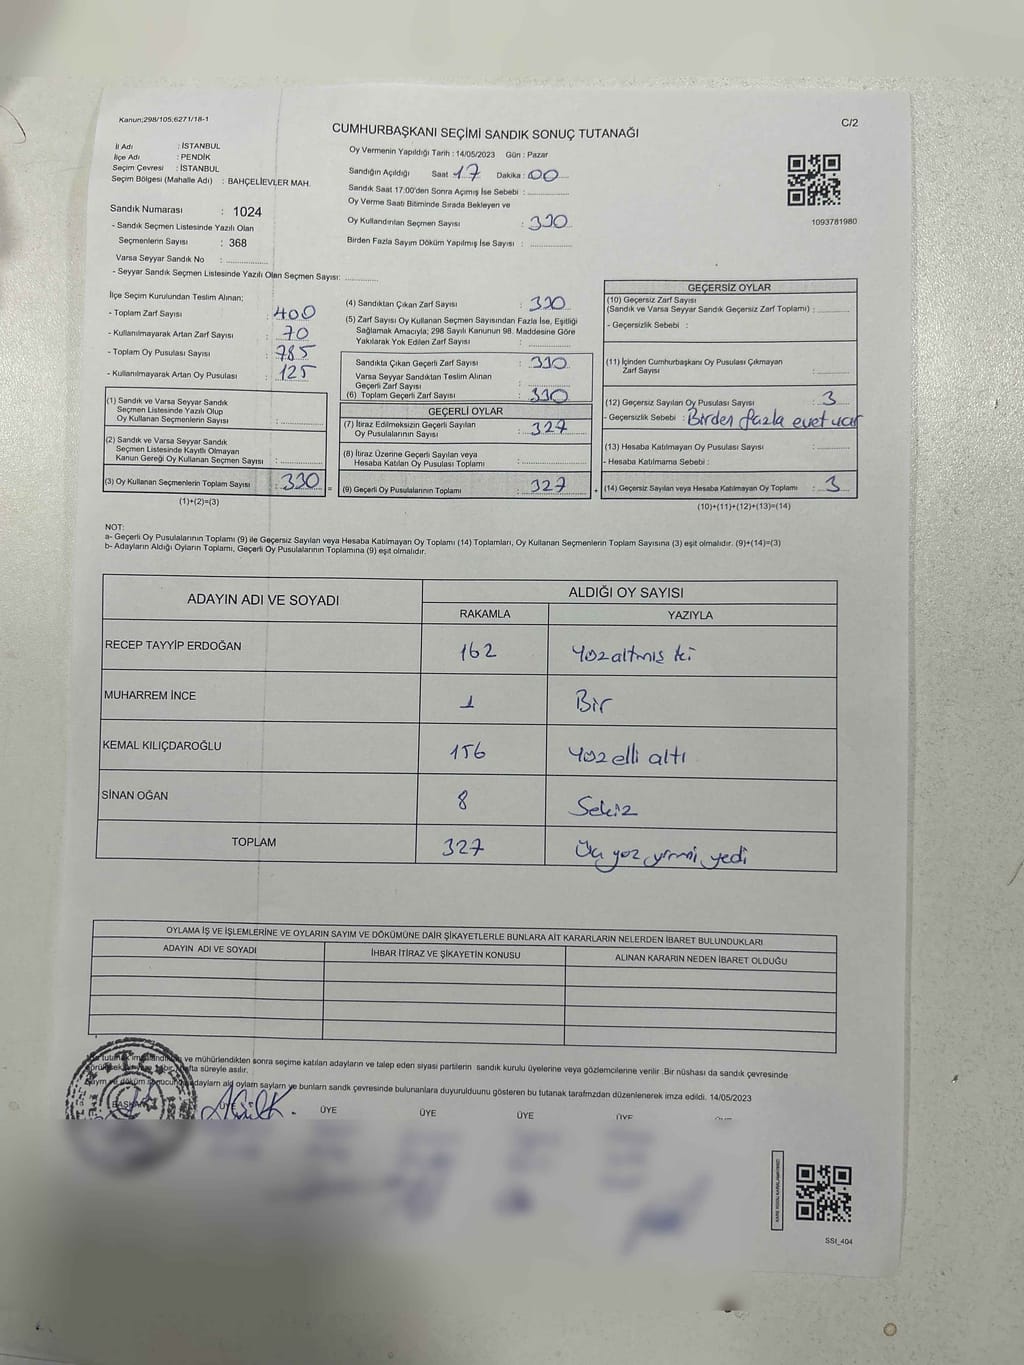 Kanun;298/105;6271/18-1
CUMHURBAŞKANI SEÇİMİ SANDIK SONUÇ TUTANAĞI
C/2
İl Adı : İSTANBUL
İlçe Adı : PENDİK
Seçim Çevresi : İSTANBUL
Seçim Bölgesi (Mahalle Adı) : BAHÇELİEVLER MAH.
Sandık Numarası : 1024
- Sandık Seçmen Listesinde Yazılı Olan
Seçmenlerin Sayısı : 368
Varsa Seyyar Sandık No :
- Seyyar Sandık Seçmen Listesinde Yazılı Olan Seçmen Sayısı:
Oy Vermenin Yapıldığı Tarih : 14/05/2023 Gün : Pazar
Sandığın Açıldığı Saat : 17 Dakika : 00
Sandık Saat 17:00'den Sonra Açımış İse Sebebi :
Oy Verme Saati Bitiminde Sırada Bekleyen ve
Oy Kullandırılan Seçmen Sayısı : 330
Birden Fazla Sayım Döküm Yapılmış İse Sayısı :
1093781980
İlçe Seçim Kurulundan Teslim Alınan;
- Toplam Zarf Sayısı : 400
- Kullanılmayarak Artan Zarf Sayısı : 70
- Toplam Oy Pusulası Sayısı : 785
- Kullanılmayarak Artan Oy Pusulası : 125
(1) Sandık ve Varsa Seyyar Sandık
Seçmen Listesinde Yazılı Olup
Oy Kullanan Seçmenlerin Sayısı :
(2) Sandık ve Varsa Seyyar Sandık
Seçmen Listesinde Kayıtlı Olmayan
Kanun Gereği Oy Kullanan Seçmen Sayısı :
(3) Oy Kullanan Seçmenlerin Toplam Sayısı : 330
(1)+(2)=(3)
(4) Sandıktan Çıkan Zarf Sayısı : 330
(5) Zarf Sayısı Oy Kullanan Seçmen Sayısından Fazla İse, Eşitliği
Sağlamak Amacıyla; 298 Sayılı Kanunun 98. Maddesine Göre
Yakılarak Yok Edilen Zarf Sayısı :
Sandıkta Çıkan Geçerli Zarf Sayısı : 330
Varsa Seyyar Sandıktan Teslim Alınan
Geçerli Zarf Sayısı :
(6) Toplam Geçerli Zarf Sayısı : 330
GEÇERLİ OYLAR
(7) İtiraz Edilmeksizin Geçerli Sayılan
Oy Pusulalarının Sayısı : 327
(8) İtiraz Üzerine Geçerli Sayılan veya
Hesaba Katılan Oy Pusulası Toplamı :
(9) Geçerli Oy Pusulalarının Toplamı : 327
GEÇERSİZ OYLAR
(10) Geçersiz Zarf Sayısı
(Sandık ve Varsa Seyyar Sandık Geçersiz Zarf Toplamı) :
- Geçersizlik Sebebi :
(11) İçinden Cumhurbaşkanı Oy Pusulası Çıkmayan
Zarf Sayısı :
(12) Geçersiz Sayılan Oy Pusulası Sayısı : 3
- Geçersizlik Sebebi : Birden fazla evet var
(13) Hesaba Katılmayan Oy Pusulası Sayısı :
- Hesaba Katılmama Sebebi :
(14) Geçersiz Sayılan veya Hesaba Katılmayan Oy Toplamı : 3
(10)+(11)+(12)+(13)=(14)
NOT:
a- Geçerli Oy Pusulalarının Toplamı (9) ile Geçersiz Sayılan veya Hesaba Katılmayan Oy Toplamı (14) Toplamları, Oy Kullanan Seçmenlerin Toplam Sayısına (3) eşit olmalıdır. (9)+(14)=(3)
b- Adayların Aldığı Oyların Toplamı, Geçerli Oy Pusulalarının Toplamına (9) eşit olmalıdır.
ADAYIN ADI VE SOYADI ALDIĞI OY SAYISI
RAKAMLA YAZIYLA
RECEP TAYYİP ERDOĞAN 162 Yüzaltmış iki
MUHARREM İNCE 1 Bir
KEMAL KILIÇDAROĞLU 156 Yüz elli altı
SİNAN OĞAN 8 Sekiz
TOPLAM 327 Üç yüz yirmi yedi
OYLAMA İŞ VE İŞLEMLERİNE VE OYLARIN SAYIM VE DÖKÜMÜNE DAİR ŞİKAYETLERLE BUNLARA AİT KARARLARIN NELERDEN İBARET BULUNDUKLARI
ADAYIN ADI VE SOYADI İHBAR İTİRAZ VE ŞİKAYETİN KONUSU ALINAN KARARIN NEDEN İBARET OLDUĞU
tutanak ve mühürlendikten sonra seçime katılan adayların ve talep eden siyasi partilerin sandık kurulu üyelerine veya gözlemcilerine verilir .Bir nüshası da sandık çevresinde
süreyle asılır.
adayların ald oyların sayların ve bunların sandık çevresinde bulunanlara duyurulduunu gösteren bu tutanak tarafmzdan düzenlenerek imza edildi. 14/05/2023
BAŞKAN ÜYE ÜYE ÜYE ÜYE ÜYE
SSI_404